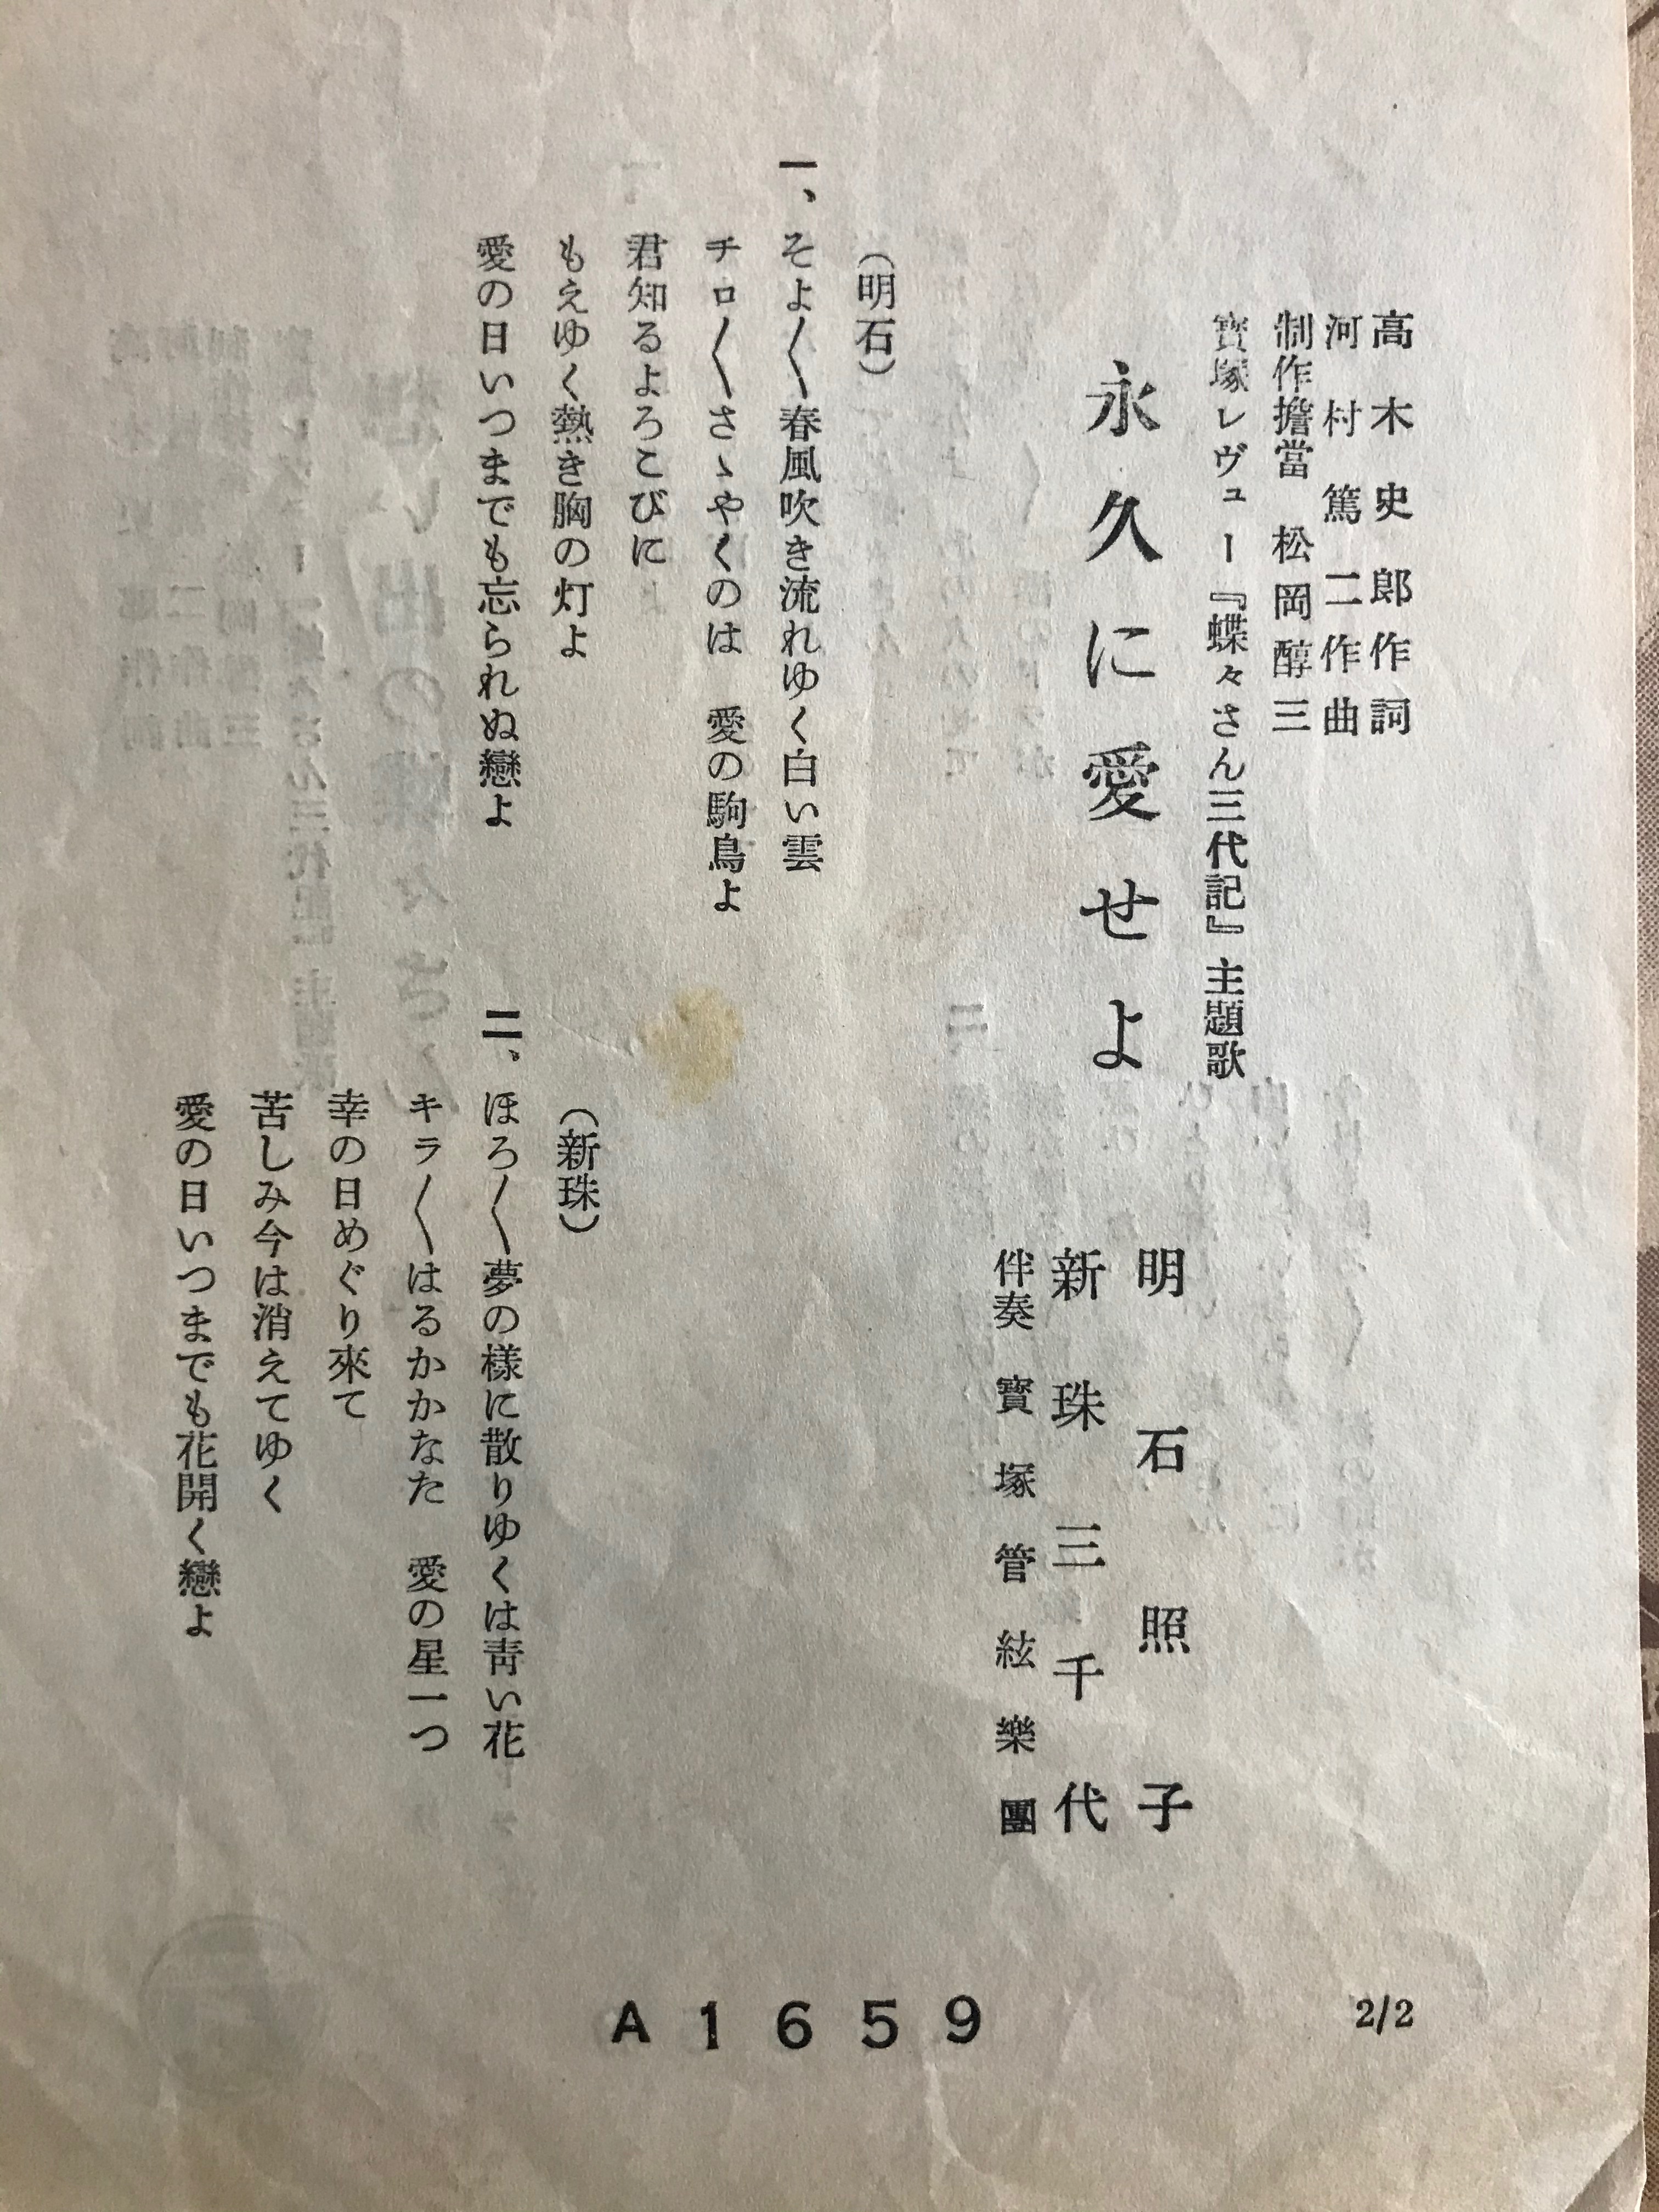 高木史郎作詞
河村篤二作曲
制作擔當 松岡醇三
寳塚レヴュー『蝶々さん三代記』主題歌
永久に愛せよ
明石照子
新珠三千代
伴奏 寳塚管絃樂團
(明石)
一、そよ〳〵春風吹き流れゆく白い雲
チロ〳〵さゝやくのは 愛の駒鳥よ
君知るよろこびに
もえゆく熱き胸の灯よ
愛の日いつまでも忘られぬ戀よ
(新珠)
二、ほろ〳〵夢の樣に散りゆくは靑い花
キラ〳〵はるかかなた 愛の星一つ
幸の日めぐり來て
苦しみ今は消えてゆく
愛の日いつまでも花開く戀よ
A1659
2/2